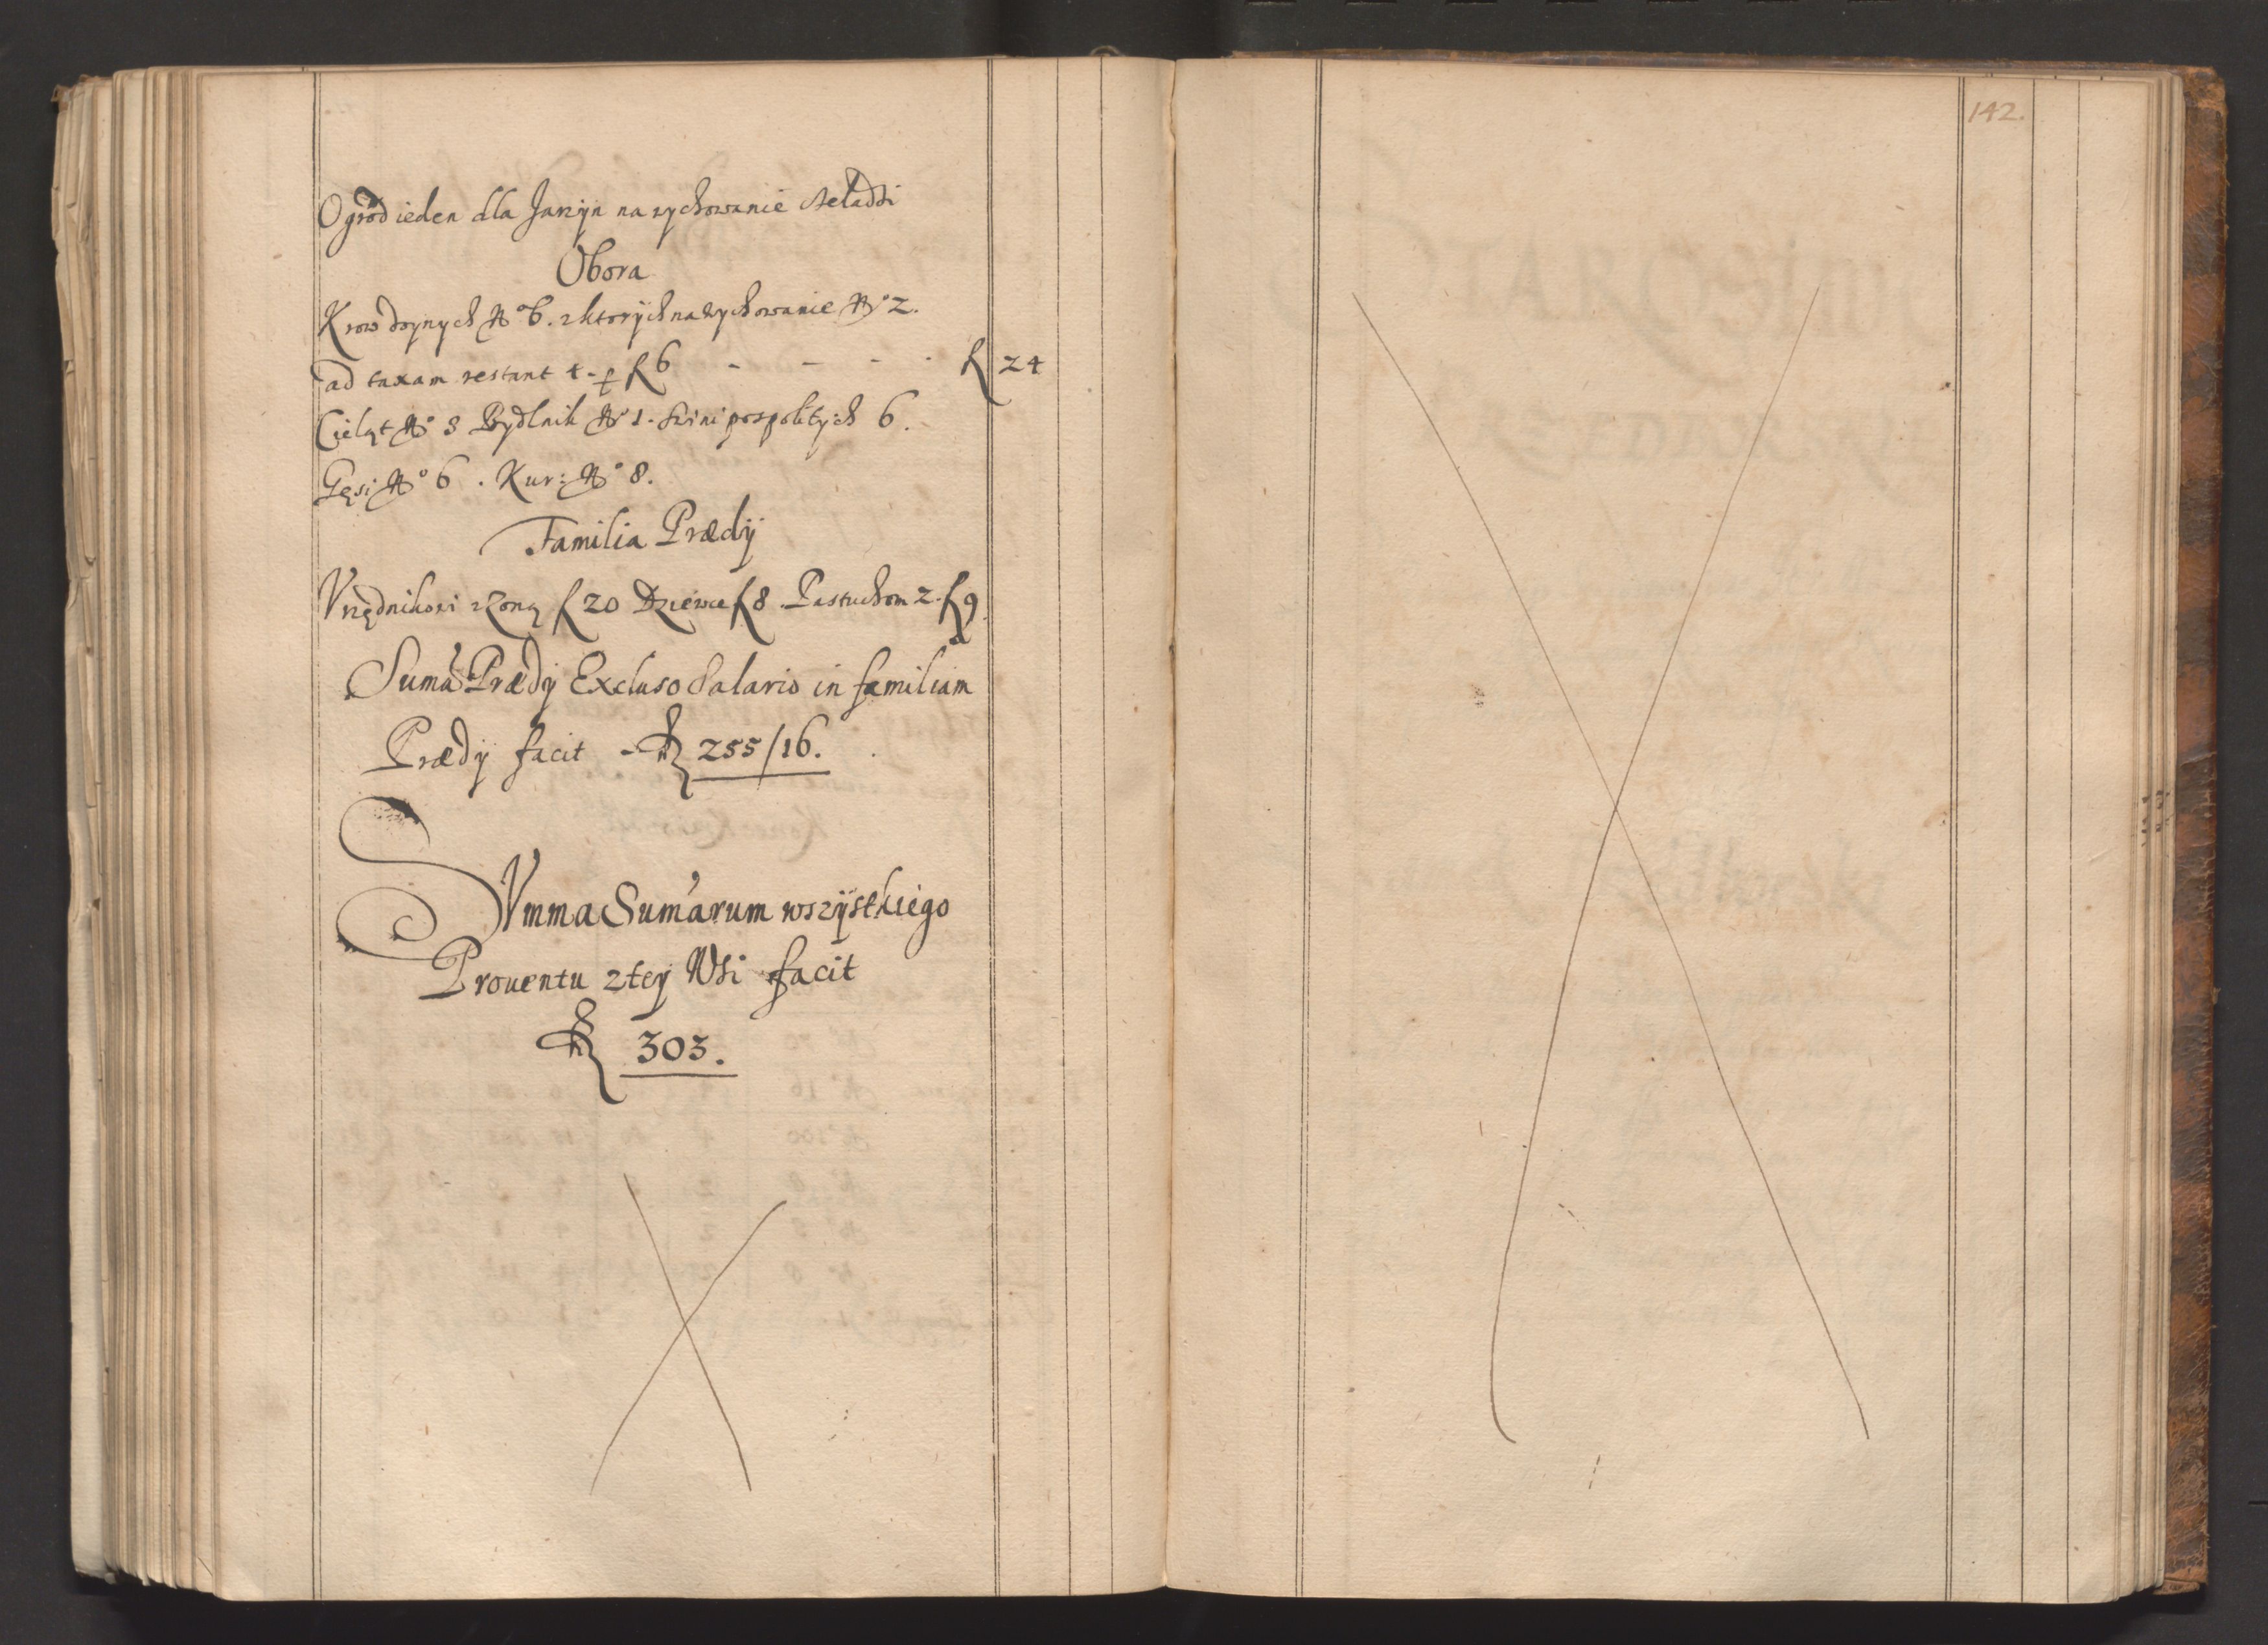 Ogrod ieden dla Jarzyn na wychowanie czeladzi
Obora
Krow doynych No 6. z ktorych na wychowanie No 2.
ad taxam restant 4 - p fl 6 - - - - fl 24
Cieląt No 3 Bydlnik No 1. Swini pospolitych 6.
Gęsi No 6. Kur: No 8.
Familia Prædij
Vrzędnikowi z Zoną fl 20 Dziewce fl 8. Pastuchom 2. fl 9.
Suma Prædij Excluso Salario in familiam
Prædij facit - fl 255/16.
SVmma Sumarum wszystkiego
Prouentu z tey Wsi facit
fl 303.
142.